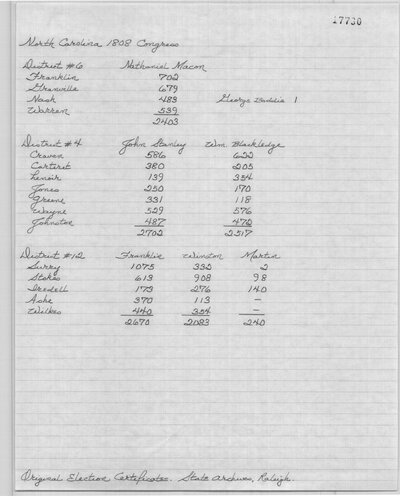 17730
North Carolina 1808 Congress
District #6 Nathaniel Macon
Franklin 702
Granville 679
Nash 483 George Boddie 1
Warren 539
2403
District #4 John Stanley Wm. Blackledge
Craven 586 622
Carteret 380 205
Lenoir 139 354
Jones 250 170
Greene 331 118
Wayne 529 576
Johnston 487 472
2702 2517
District #12 Franklin Winston Martin
Surry 1075 332 2
Stokes 613 908 98
Iredell 172 276 140
Ashe 370 113 —
Wilkes 440 354 —
2670 2083 240
Original Election Certificates. State Archives, Raleigh.